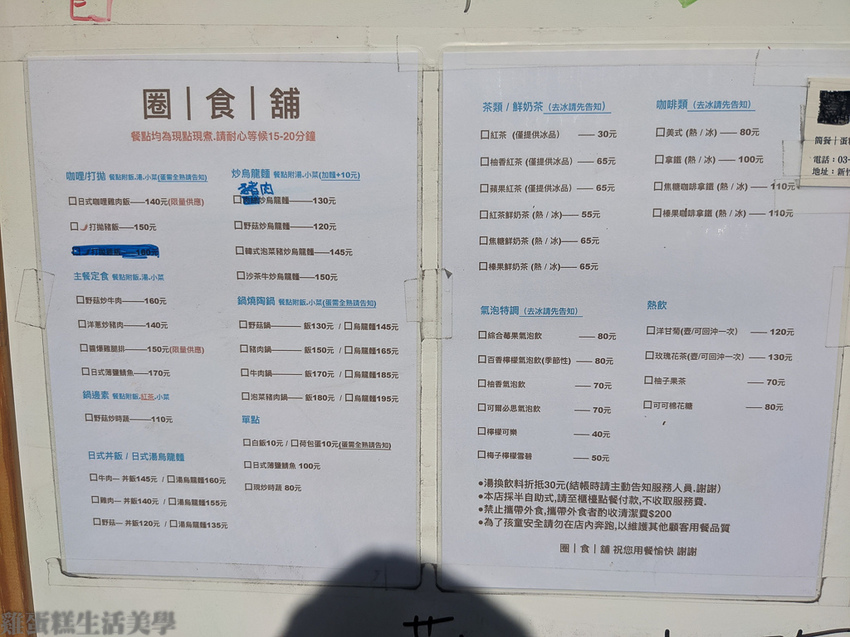 圈|食|舖
餐點均為現點現煮.請耐心等候15-20分鐘
咖哩/打拋 餐點附飯.湯.小菜(蛋需全熟請告知)
☐日式咖哩雞肉飯——140元(限量供應)
☐打拋豬飯——150元
180元
主餐定食 餐點附飯.湯.小菜
☐野菇炒牛肉——160元
☐洋蔥炒豬肉——140元
☐醬爆雞腿排——150元(限量供應)
☐日式薄鹽鯖魚——170元
鍋邊素 餐點附飯.紅茶.小菜
☐野菇炒時蔬——110元
日式丼飯 / 日式湯烏龍麵
☐牛肉— 丼飯145元 / ☐湯烏龍麵160元
☐雞肉— 丼飯140元 / ☐湯烏龍麵155元
☐野菇— 丼飯120元 / ☐湯烏龍麵135元
炒烏龍麵 餐點附湯.小菜(加麵+10元)
豬肉
炒烏龍麵——130元
☐野菇炒烏龍麵——120元
☐韓式泡菜豬炒烏龍麵——145元
☐沙茶牛炒烏龍麵——150元
鍋燒陶鍋 餐點附小菜(蛋需全熟請告知)
☐野菇鍋——— 飯130元 / ☐烏龍麵145元
☐豬肉鍋——— 飯150元 / ☐烏龍麵165元
☐牛肉鍋——— 飯170元 / ☐烏龍麵185元
☐泡菜豬肉鍋—— 飯180元 / ☐烏龍麵195元
單點
☐白飯10元 / ☐荷包蛋10元(蛋需全熟請告知)
☐日式薄鹽鯖魚 100元
☐現炒時蔬 80元
茶類 / 鮮奶茶 (去冰請先告知)
☐紅茶 (僅提供冰品) —— 30元
☐柚香紅茶 (僅提供冰品) —— 65元
☐蘋果紅茶 (僅提供冰品) —— 65元
☐紅茶鮮奶茶 (熱 / 冰) —— 55元
☐焦糖鮮奶茶 (熱 / 冰) —— 65元
☐榛果鮮奶茶 (熱 / 冰) —— 65元
咖啡類 (去冰請先告知)
☐美式 (熱 / 冰) —— 80元
☐拿鐵 (熱 / 冰) —— 100元
☐焦糖咖啡拿鐵 (熱 / 冰) — 110元
☐榛果咖啡拿鐵 (熱 / 冰) — 110元
氣泡特調 (去冰請先告知)
☐綜合莓果氣泡飲 —— 80元
☐百香檸檬氣泡飲(季節性) —— 80元
☐柚香氣泡飲 —— 70元
☐可爾必思氣泡飲 —— 70元
☐檸檬可樂 —— 40元
☐梅子檸檬雪碧 —— 50元
熱飲
☐洋甘菊(壺/可回沖一次) —— 120元
☐玫瑰花茶(壺/可回沖一次) —— 130元
☐柚子果茶 —— 70元
☐可可棉花糖 —— 80元
●湯換飲料折抵30元(結帳時請主動告知服務人員.謝謝)
●本店採半自助式,請至櫃檯點餐付款,不收取服務費.
●禁止攜帶外食,攜帶外食者酌收清潔費$200
●為了孩童安全請勿在店內奔跑,以維護其他顧客用餐品質
圈|食|舖 祝您用餐愉快 謝謝
簡餐|蛋
電話:03-
地址:新竹
雞蛋糕生活美學